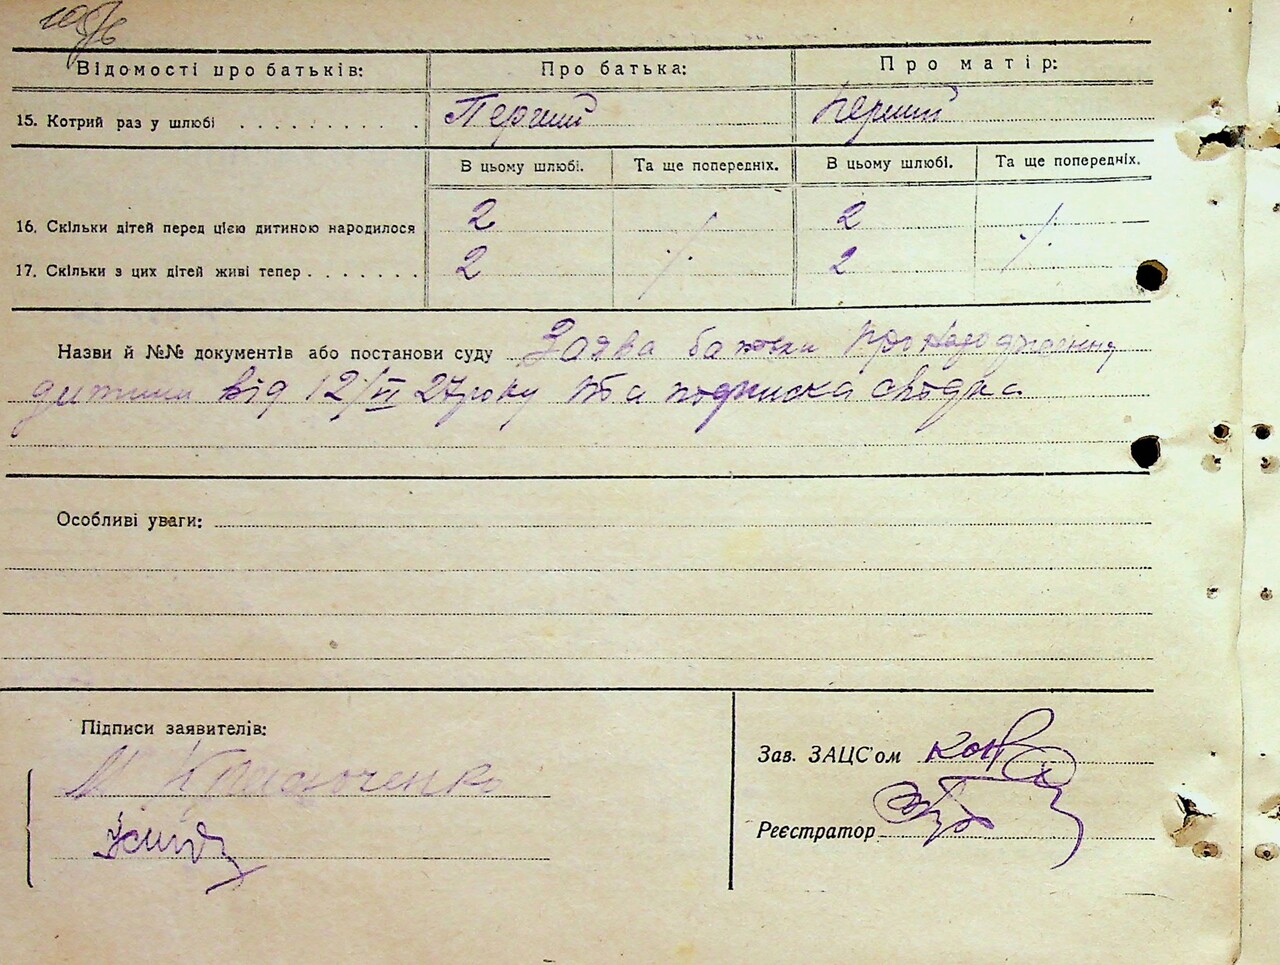 Відомості про батьків: Про батька: Про матір:
15. Котрий раз у шлюбі . . . . . . . . . . Перший Перший
В цьому шлюбі. Та ще попередніх. В цьому шлюбі. Та ще попередніх.
16. Скільки дітей перед цією дитиною народилося 2 ⁒ 2 ⁒
17. Скільки з цих дітей живі тепер . . . . . . . 2 2
Назви й №№ документів або постанови суду Заява батьки про народження
дитини від 12/VI 27 року та подписка свідка
Особливі уваги:
Підписи заявителів:
М.
Зав. ЗАЦС'ом
Реєстратор